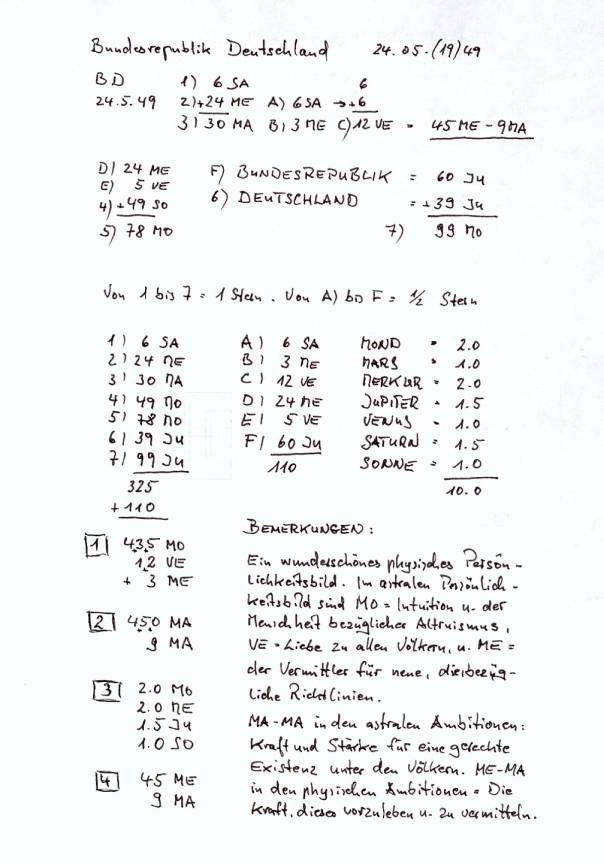 Bundesrepublik Deutschland 24.05.(19)49
BD 1) 6 SA 6
24.5.49 2)+24 ME A) 6 SA → +6
3) 30 MA B) 3 ME C) 12 VE = 45 ME - 9 MA
D) 24 ME F) BUNDESREPUBLIK = 60 JU
E) 5 VE 6) DEUTSCHLAND = +39 JU
4) +49 SO
5) 78 MO 7) 99 MO
Von 1 bis 7 = 1 Stern. Von A) bis F = 1/2 Stern
1) 6 SA A) 6 SA MOND = 2.0
2) 24 ME B) 3 ME MARS = 1.0
3) 30 MA C) 12 VE MERKUR = 2.0
4) 49 MO D) 24 ME JUPITER = 1.5
5) 78 MO E) 5 VE VENUS = 1.0
6) 39 JU F) 60 JU SATURN = 1.5
7) 99 JU 110 SONNE = 1.0
325 10.0
+110
BEMERKUNGEN:
1 43,5 MO
1,2 VE
+ 3 ME
2 45,0 MA
9 MA
3 2.0 MO
2.0 ME
1.5 JU
1.0 SO
4 45 ME
9 MA
Ein wunderschönes physisches Persön-
lichkeitsbild. Im astralen Persönlich-
keitsbild sind MO = Intuition u. der
Menschheit bezüglicher Altruismus,
VE = Liebe zu allen Völkern, u. ME =
der Vermittler für neue, diesbezüg-
liche Richtlinien.
MA-MA in den astralen Ambitionen:
Kraft und Stärke für eine gerechte
Existenz unter den Völkern. ME-MA
in den physischen Ambitionen = Die
Kraft, dieses vorzuleben u. zu vermitteln.